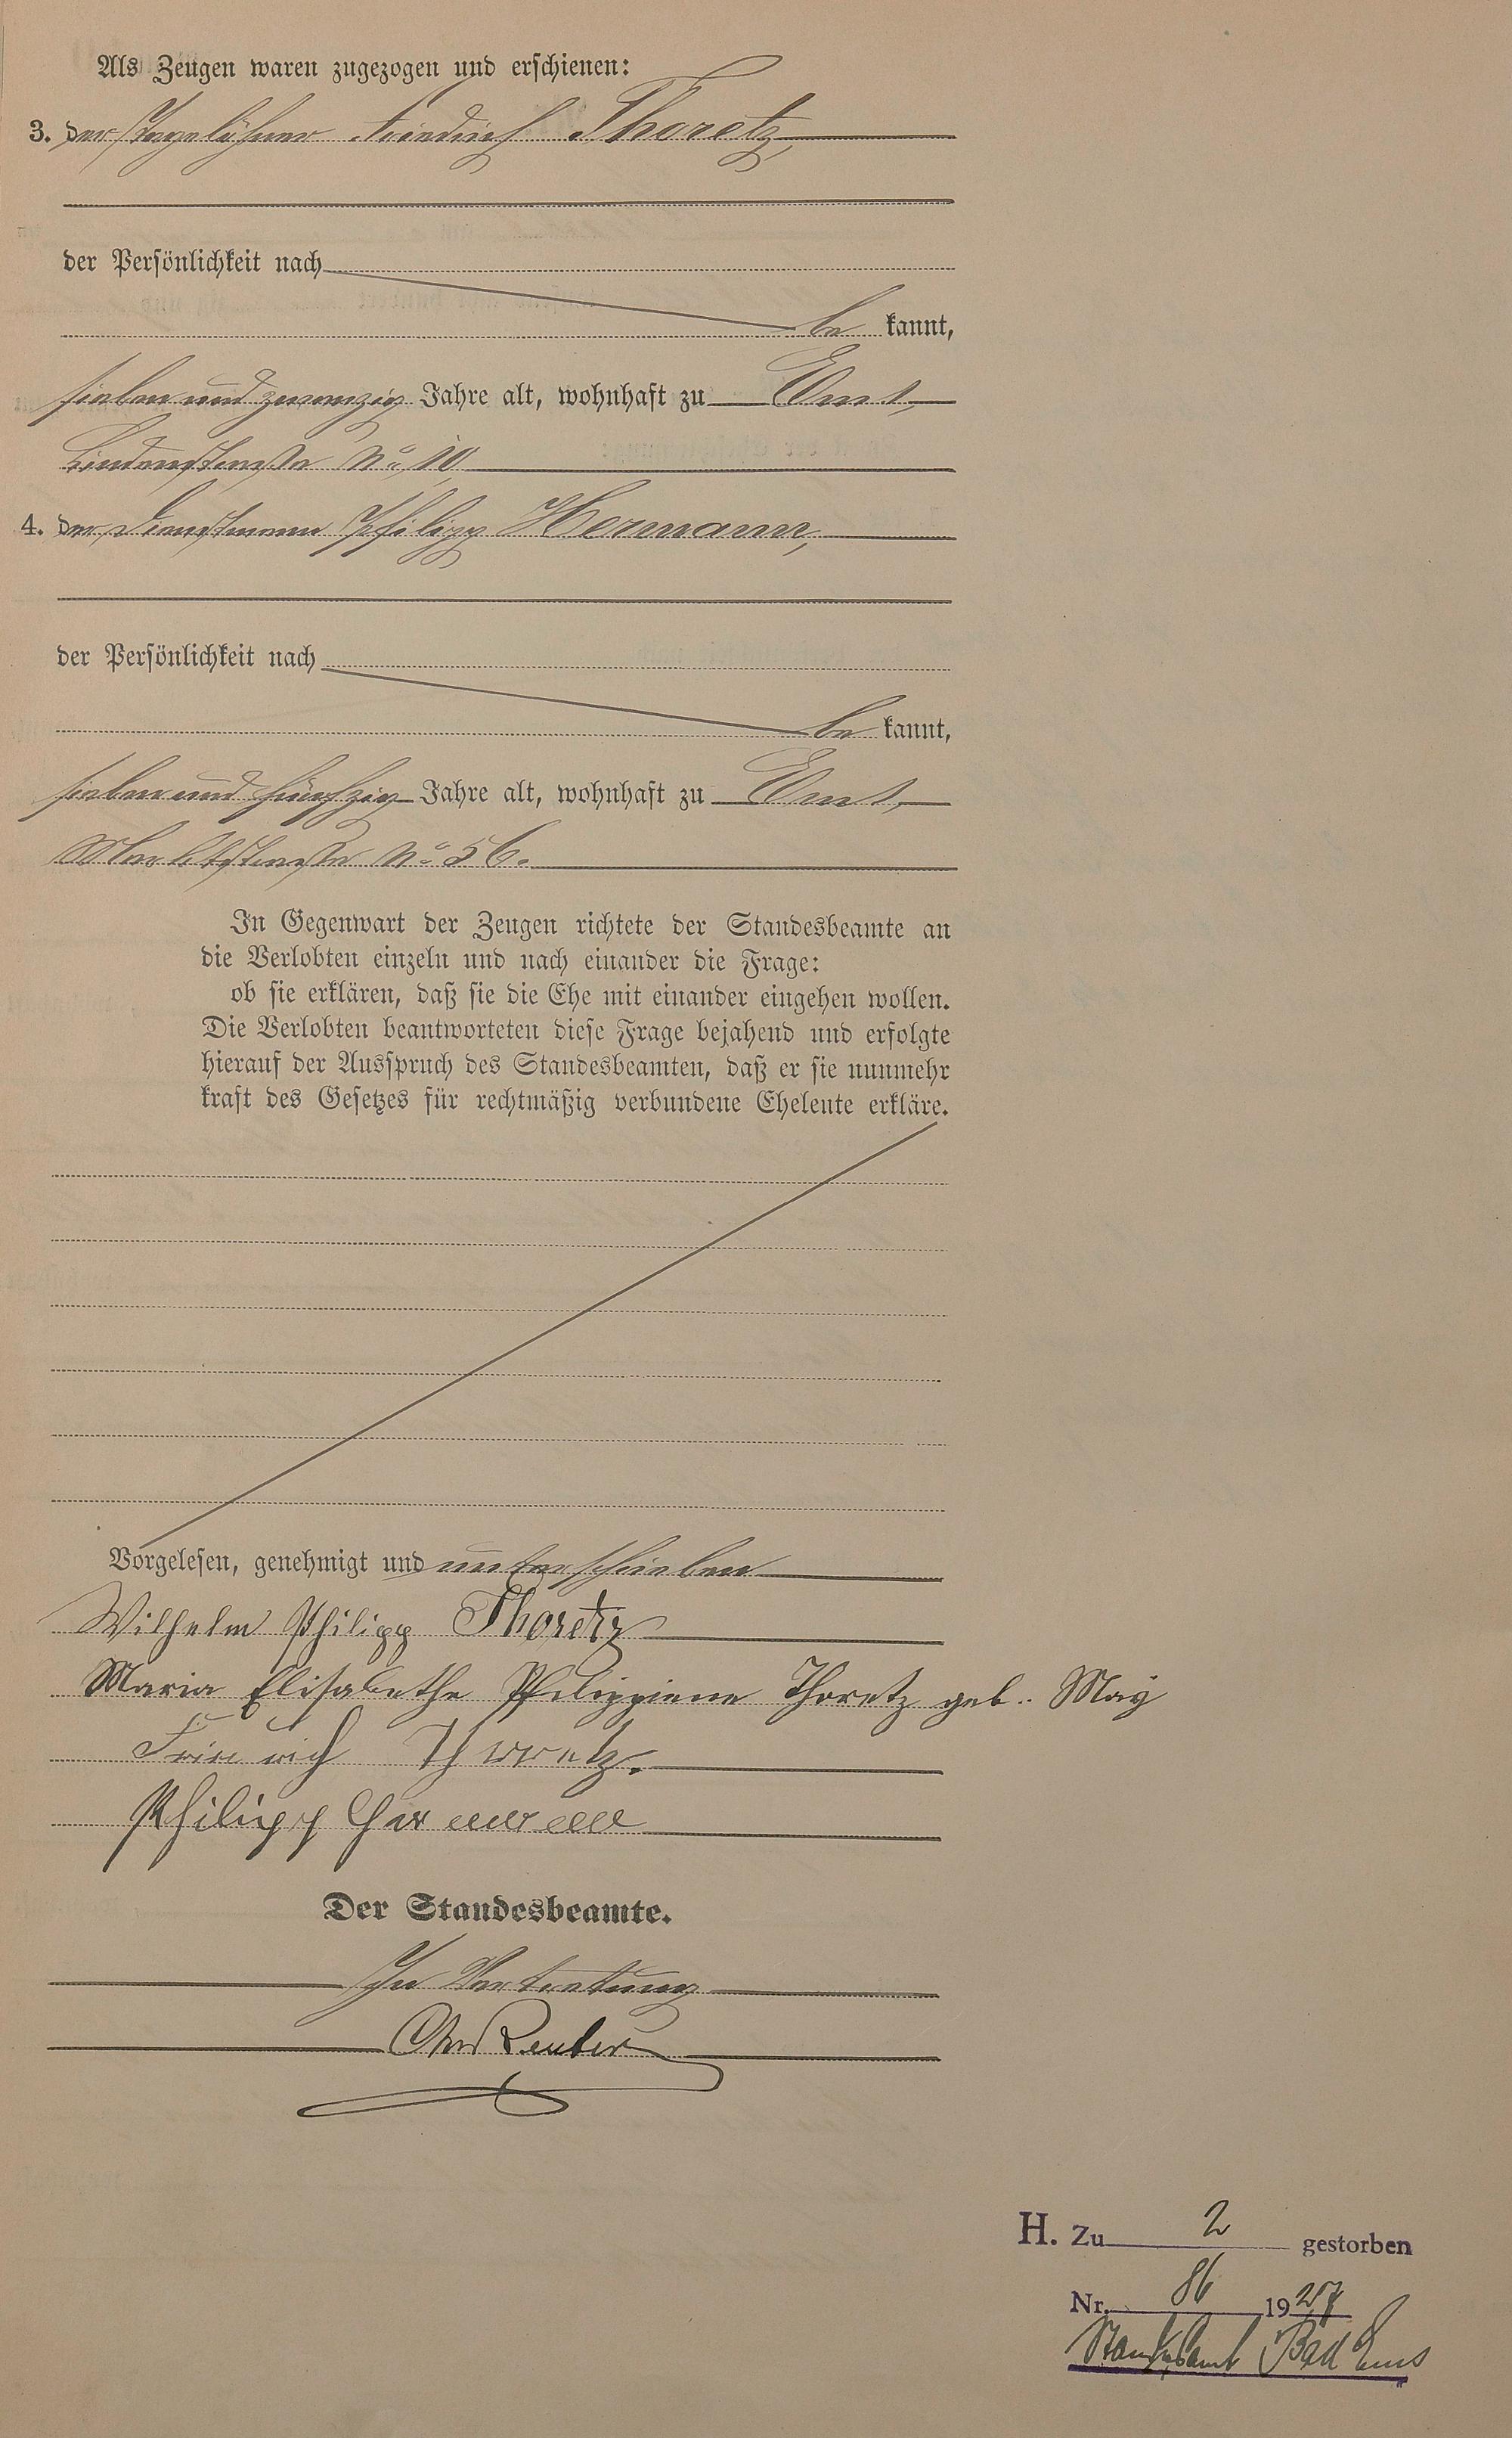 Als Zeugen waren zugezogen und erschienen:
3. der Tagelöhner Friedrich Thoretz,
der Persönlichkeit nach
be kannt,
sieben und zwanzig Jahre alt, wohnhaft zu Ems,
Lindenstraße No. 10
4. der Dienstmann Philipp Hermann,
der Persönlichkeit nach
be kannt,
sieben und fünfzig Jahre alt, wohnhaft zu Ems,
Marktstraße No. 56.
In Gegenwart der Zeugen richtete der Standesbeamte an
die Verlobten einzeln und nach einander die Frage:
ob sie erklären, daß sie die Ehe mit einander eingehen wollen.
Die Verlobten beantworteten diese Frage bejahend und erfolgte
hierauf der Ausspruch des Standesbeamten, daß er sie nunmehr
kraft des Gesetzes für rechtmäßig verbundene Eheleute erkläre.
Vorgelesen, genehmigt und unterschrieben
Wilhelm Philipp Thoretz
Maria Elisabethe Philippiene Thoretz geb. May
Friedrich Thoretz.
Philipp Hermann
Der Standesbeamte.
In Vertretung
Reuter
H. Zu 2 gestorben
Nr. 86 1927
Standesamt Bad Ems